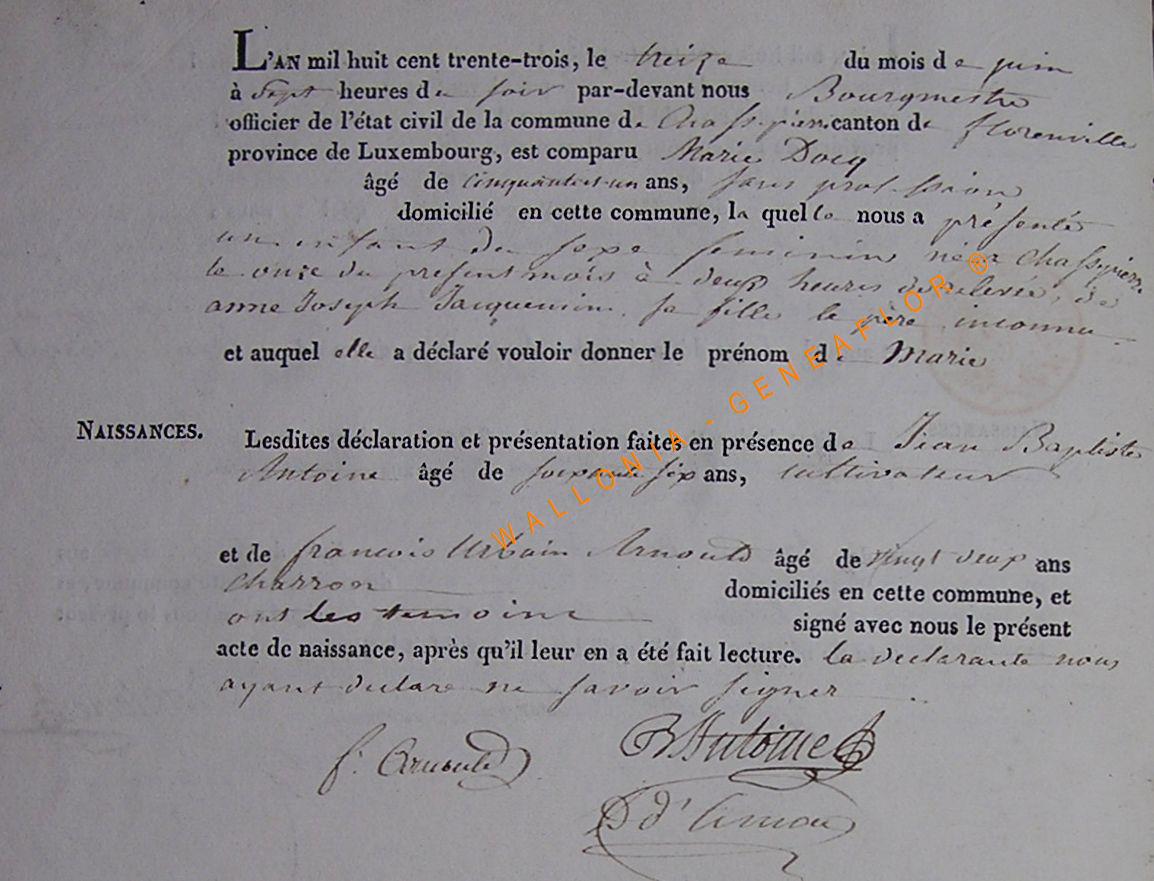 L'AN mil huit cent trente-trois, le treize du mois de juin
à Sept heures du soir par-devant nous Bourgmestre
officier de l'état civil de la commune de Chassepierre canton de florenville
province de Luxembourg, est comparu Marie Docq
âgé de cinquante et un ans, sans profession
domicilié en cette commune, la quelle nous a présenté
un enfant du sexe feminin né à Chassepierre
le onze du present mois à deux heures de relevée, de
anne Joseph Jacquemin sa fille le père inconnu
et auquel elle a déclaré vouloir donner le prénom de Marie
NAISSANCES.
Lesdites déclaration et présentation faites en présence de Jean Baptiste
Antoine âgé de soixante six ans, cultivateur
et de francois Urbain Arnould âgé de vingt deux ans
charron domiciliés en cette commune, et
ont les temoins signé avec nous le présent
acte de naissance, après qu'il leur en a été fait lecture. la declarante nous
ayant declaré ne savoir signer
f. Arnould Antoine
WALLONIA - GENEAFLOR ®